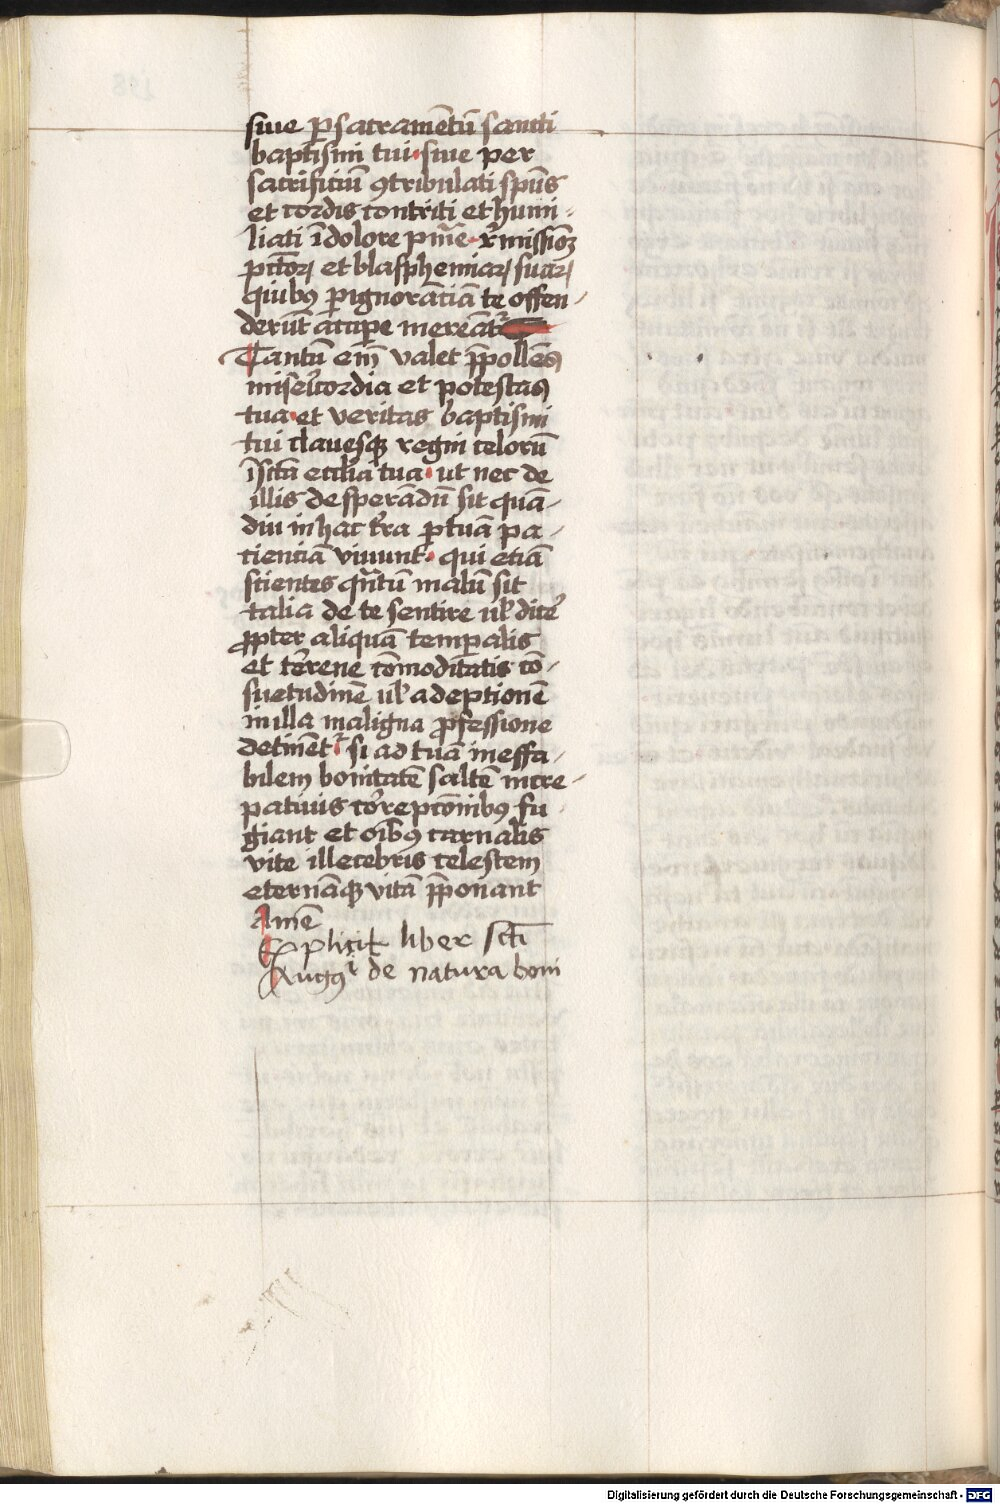 siue ꝑ sacramētū sancti
baptismi tui · siue per
sacrificiū ꝯtribulati spūs
et cordis contriti et humi-
liati ī dolore pnīe · r̄missiōꝫ
pctōꝝ et blasphemiaꝝ suaꝝ
quibꝯ ꝑ ignorātiā te offen-
derūt accipe mereāt᷑
Tantū em̄ valet p̄pollēs
misericordia et potestas
tua · et veritas baptismi
tui clauesqꝫ regni celorū
ī scta ecclīa tua · ut nec de
illis desperādū sit quā-
diu in hac tr̄a ꝑ tuā pa-
cienciā viuunt · qui etiā
scientes qn̄tū malū sit
talia de te sentire uł dicē
ꝓpter aliquā temꝑalis
et terrene cōmoditatis cō-
suetudinē uł adeptionē
in illa maligna ꝓfessione
detinēt᷑ · si ad tuā ineffa-
bilem bonitatē saltē incre-
patiuis correptōnibꝯ fu-
giant et oībꝯ carnalis
vite illecebris celestem
eternāqꝫ vitā p̄ponant
Amē
Explicit liber scti
Augꝯⁱ de natura boni
Digitalisierung gefördert durch die Deutsche Forschungsgemeinschaft - DFG